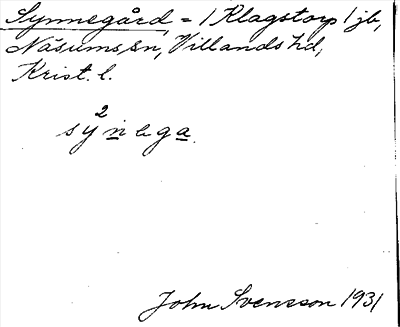 Synnegård = / Klagstorp / jb,
Näsums sn, Villands hd,
Krist. l.
2
sy n e g a.
John Svensson 1931